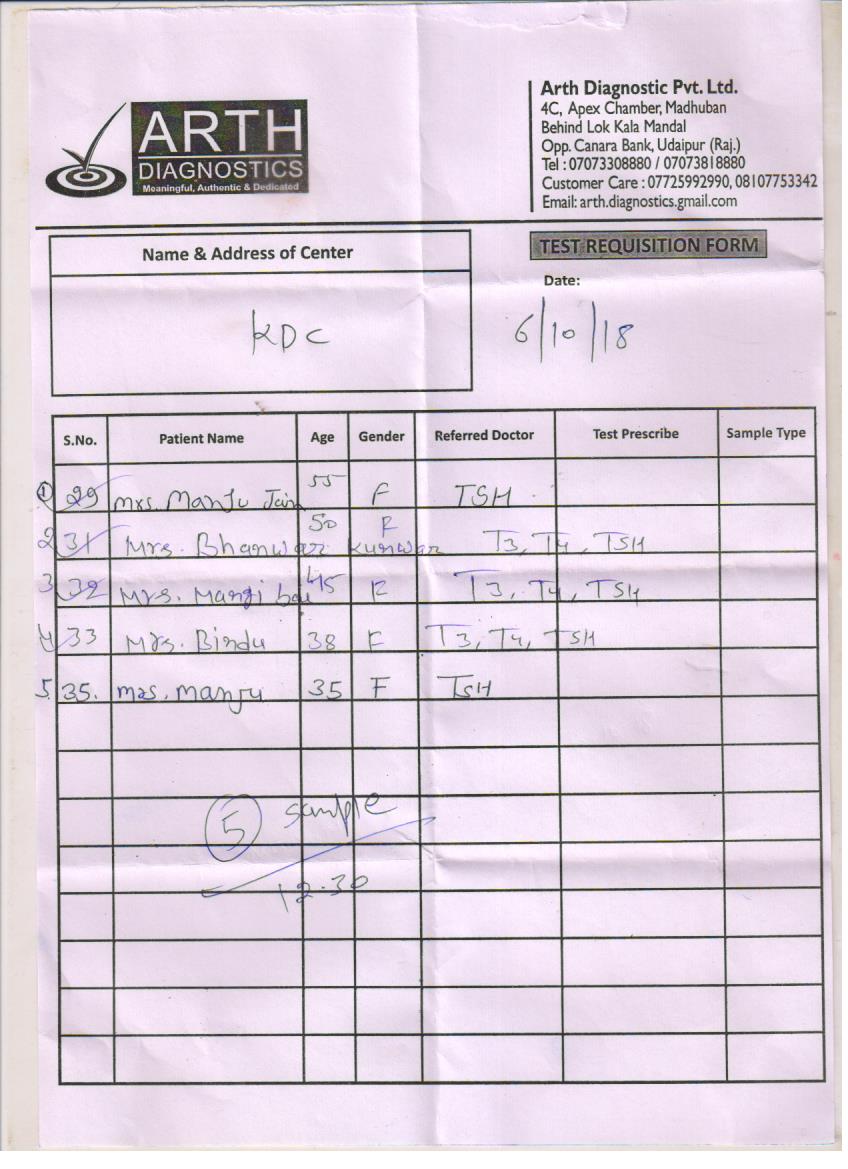 ARTH
DIAGNOSTICS
Meaningful, Authentic & Dedicated
Arth Diagnostic Pvt. Ltd.
4C, Apex Chamber, Madhuban
Behind Lok Kala Mandal
Opp. Canara Bank, Udaipur (Raj.)
Tel : 07073308880 / 07073818880
Customer Care : 07725992990, 08107753342
Email: arth.diagnostics.gmail.com
Name & Address of Center
TEST REQUISITION FORM
Date:
KDC
6/10/18
S.No. Patient Name Age Gender Referred Doctor Test Prescribe Sample Type
1 29 Mrs. Manju Jain 55 F TSH
2 31 Mrs. Bhanwar Kunwar 50 F T3, T4, TSH
3 32 Mrs. Mangi bai 45 F T3, T4, TSH
4 33 Mrs. Bindu 38 F T3, T4, TSH
5. 35. Mrs. Manju 35 F TSH
5 sample
12.30